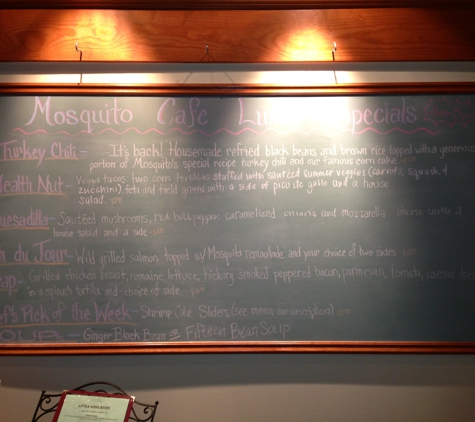 Mosquito Cafe Lunch Specials
Turkey Chili- It's back! Housemade refried black beans and brown rice topped with a generous
portion of Mosquito's special recipe turkey chili and our famous corn cake.
Health Nut- Veggie tacos: two corn tortillas stuffed with sautéed summer veggies (carrots, squash, &
zucchini), feta and field greens with a side of pico de gallo and a house
salad.
uesadilla- Sautéed mushrooms, red bell pepper, caramelized onions and mozzarella cheese with a
house salad and a side
n du Jour- Wild grilled salmon topped w/ Mosquito remoulade and your choice of two sides
rap- Grilled chicken breast, romaine lettuce, hickory smoked peppered bacon, parmesan, tomato, caesar
in a spinach tortilla and choice of side.
Pick of the Week- Shrimp Cake Sliders (see menu for description)
OUPS- Ginger Black Bean or Fifteen Bean Soup